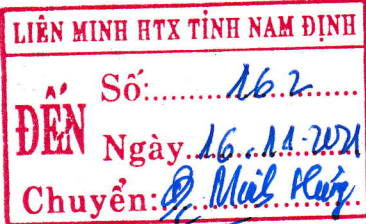 LIÊN MINH HTX TỈNH NAM ĐỊNH
ĐẾN
Số:........162.........
Ngày..16..11-2021
Chuyển: Đ/c Minh Hưng